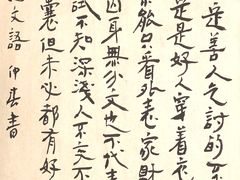 是善人乞討的
是好人穿着衣
能只看外表家財
身無分文也不代表
試不知深淺人不交不
囊但未必都有好
文語 書